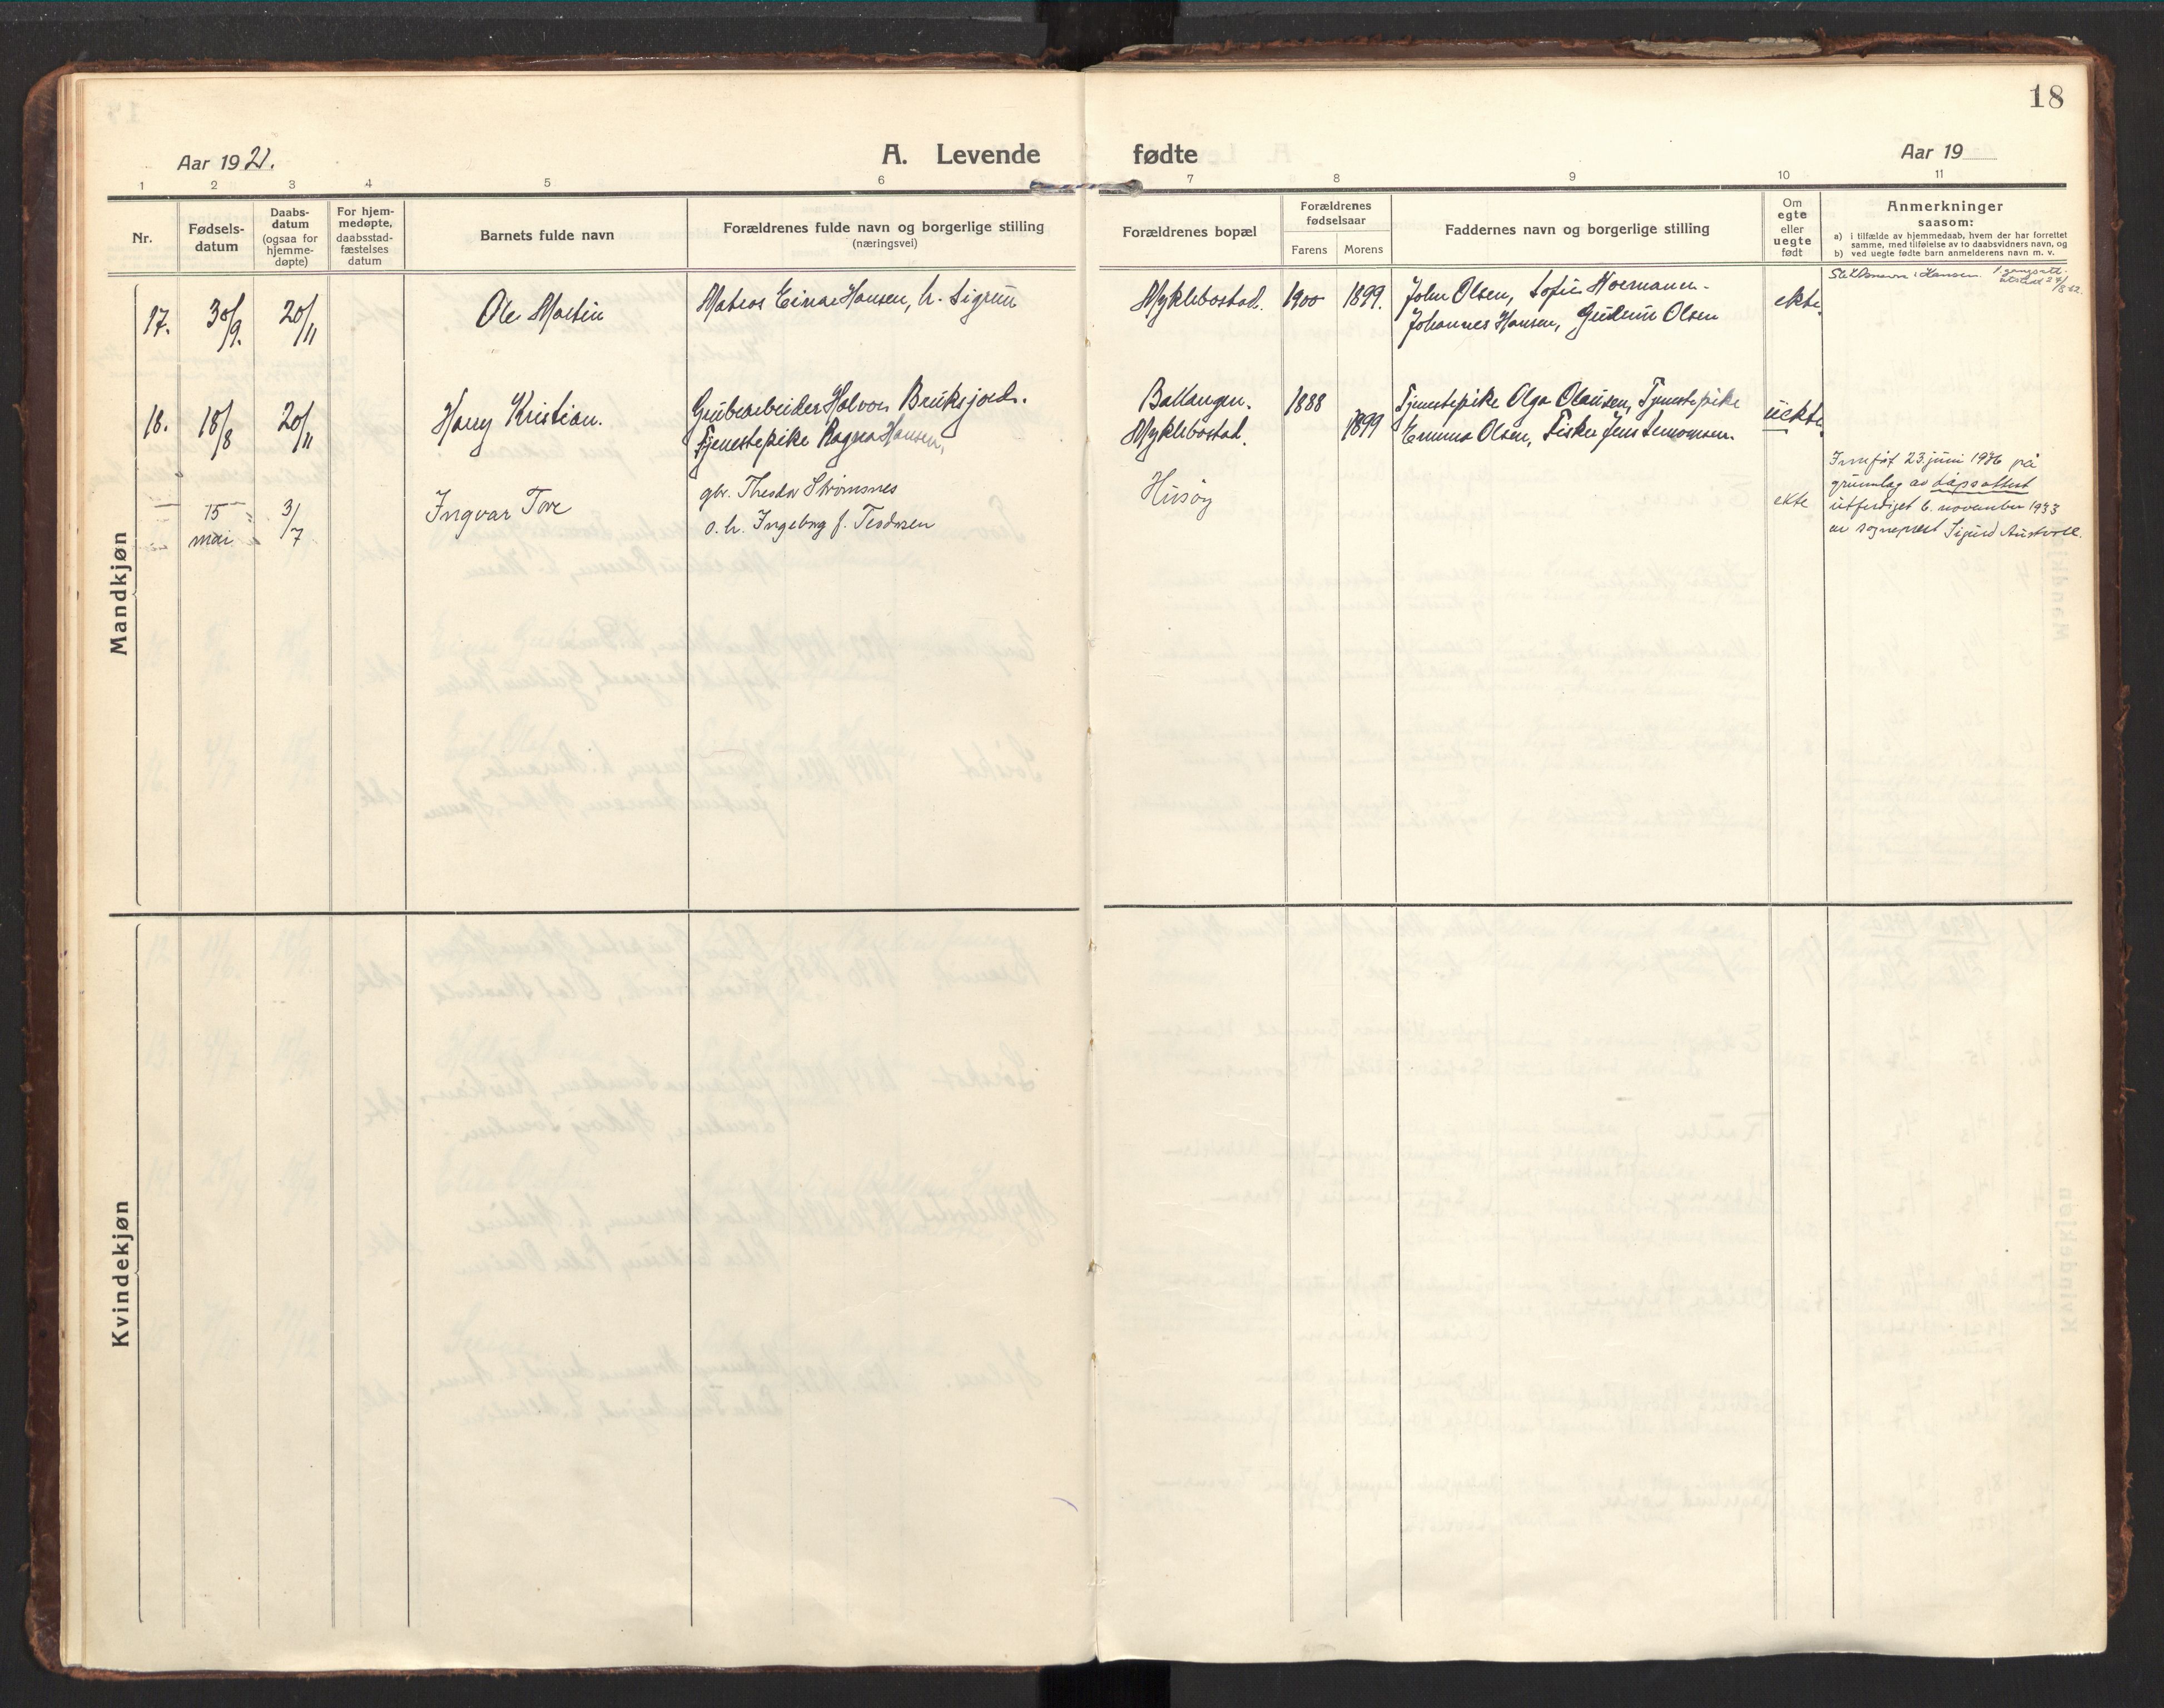 18
Aar 1921.
A. Levende fødte
Aar 19
1 2 3 4 5 6 7 8 9 10 11
Nr.
Fødsels-
datum
Daabs-
datum
(ogsaa for
hjemme-
døpte)
For hjem-
medøpte,
daabsstad-
fæstelses
datum
Barnets fulde navn
Forældrenes fulde navn og borgerlige stilling
(næringsvei)
Forældrenes bopæl
Forældrenes
fødselsaar
Farens Morens
Faddernes navn og borgerlige stilling
Om
egte
eller
uegte
født
Anmerkninger
saasom:
a) i tilfælde av hjemmedaab, hvem der har forrettet
samme, med tilføielse av to daabsvidners navn, og
b) ved uegte fødte barn anmelderens navn m. v.
Mandkjøn
17. 30/9. 20/11 Ole Martin
Mateos Einar Hansen, h. Sigrun
Myklebostad. 1900 1899.
John Olsen, Sofie Noermann.
Johannes Hansen, Gudrun Olsen
ekte.
Slektsnavn: Hansen.
18. 18/8 20/11 Harry Kristian.
Grubearbeider Halvor Bruksjord.
Tjenestepike Ragna Hansen,
Ballangen. 1888
Myklebostad. 1899
Tjenestepike Olga Olausen, Tjenestepike
Emma Olsen, Fisker Jens
uekte.
— 15 mai 3/7 Ingvar Tore
gbr. Theodor Strømsnes
o. h. Ingeborg f.
Husøy
ekte
Innført 23. juni 1936 på
grunnlag av dåpsattest
utferdiget 6. november 1933
av sogneprest Sigurd Austvoll.
Kvindekjøn